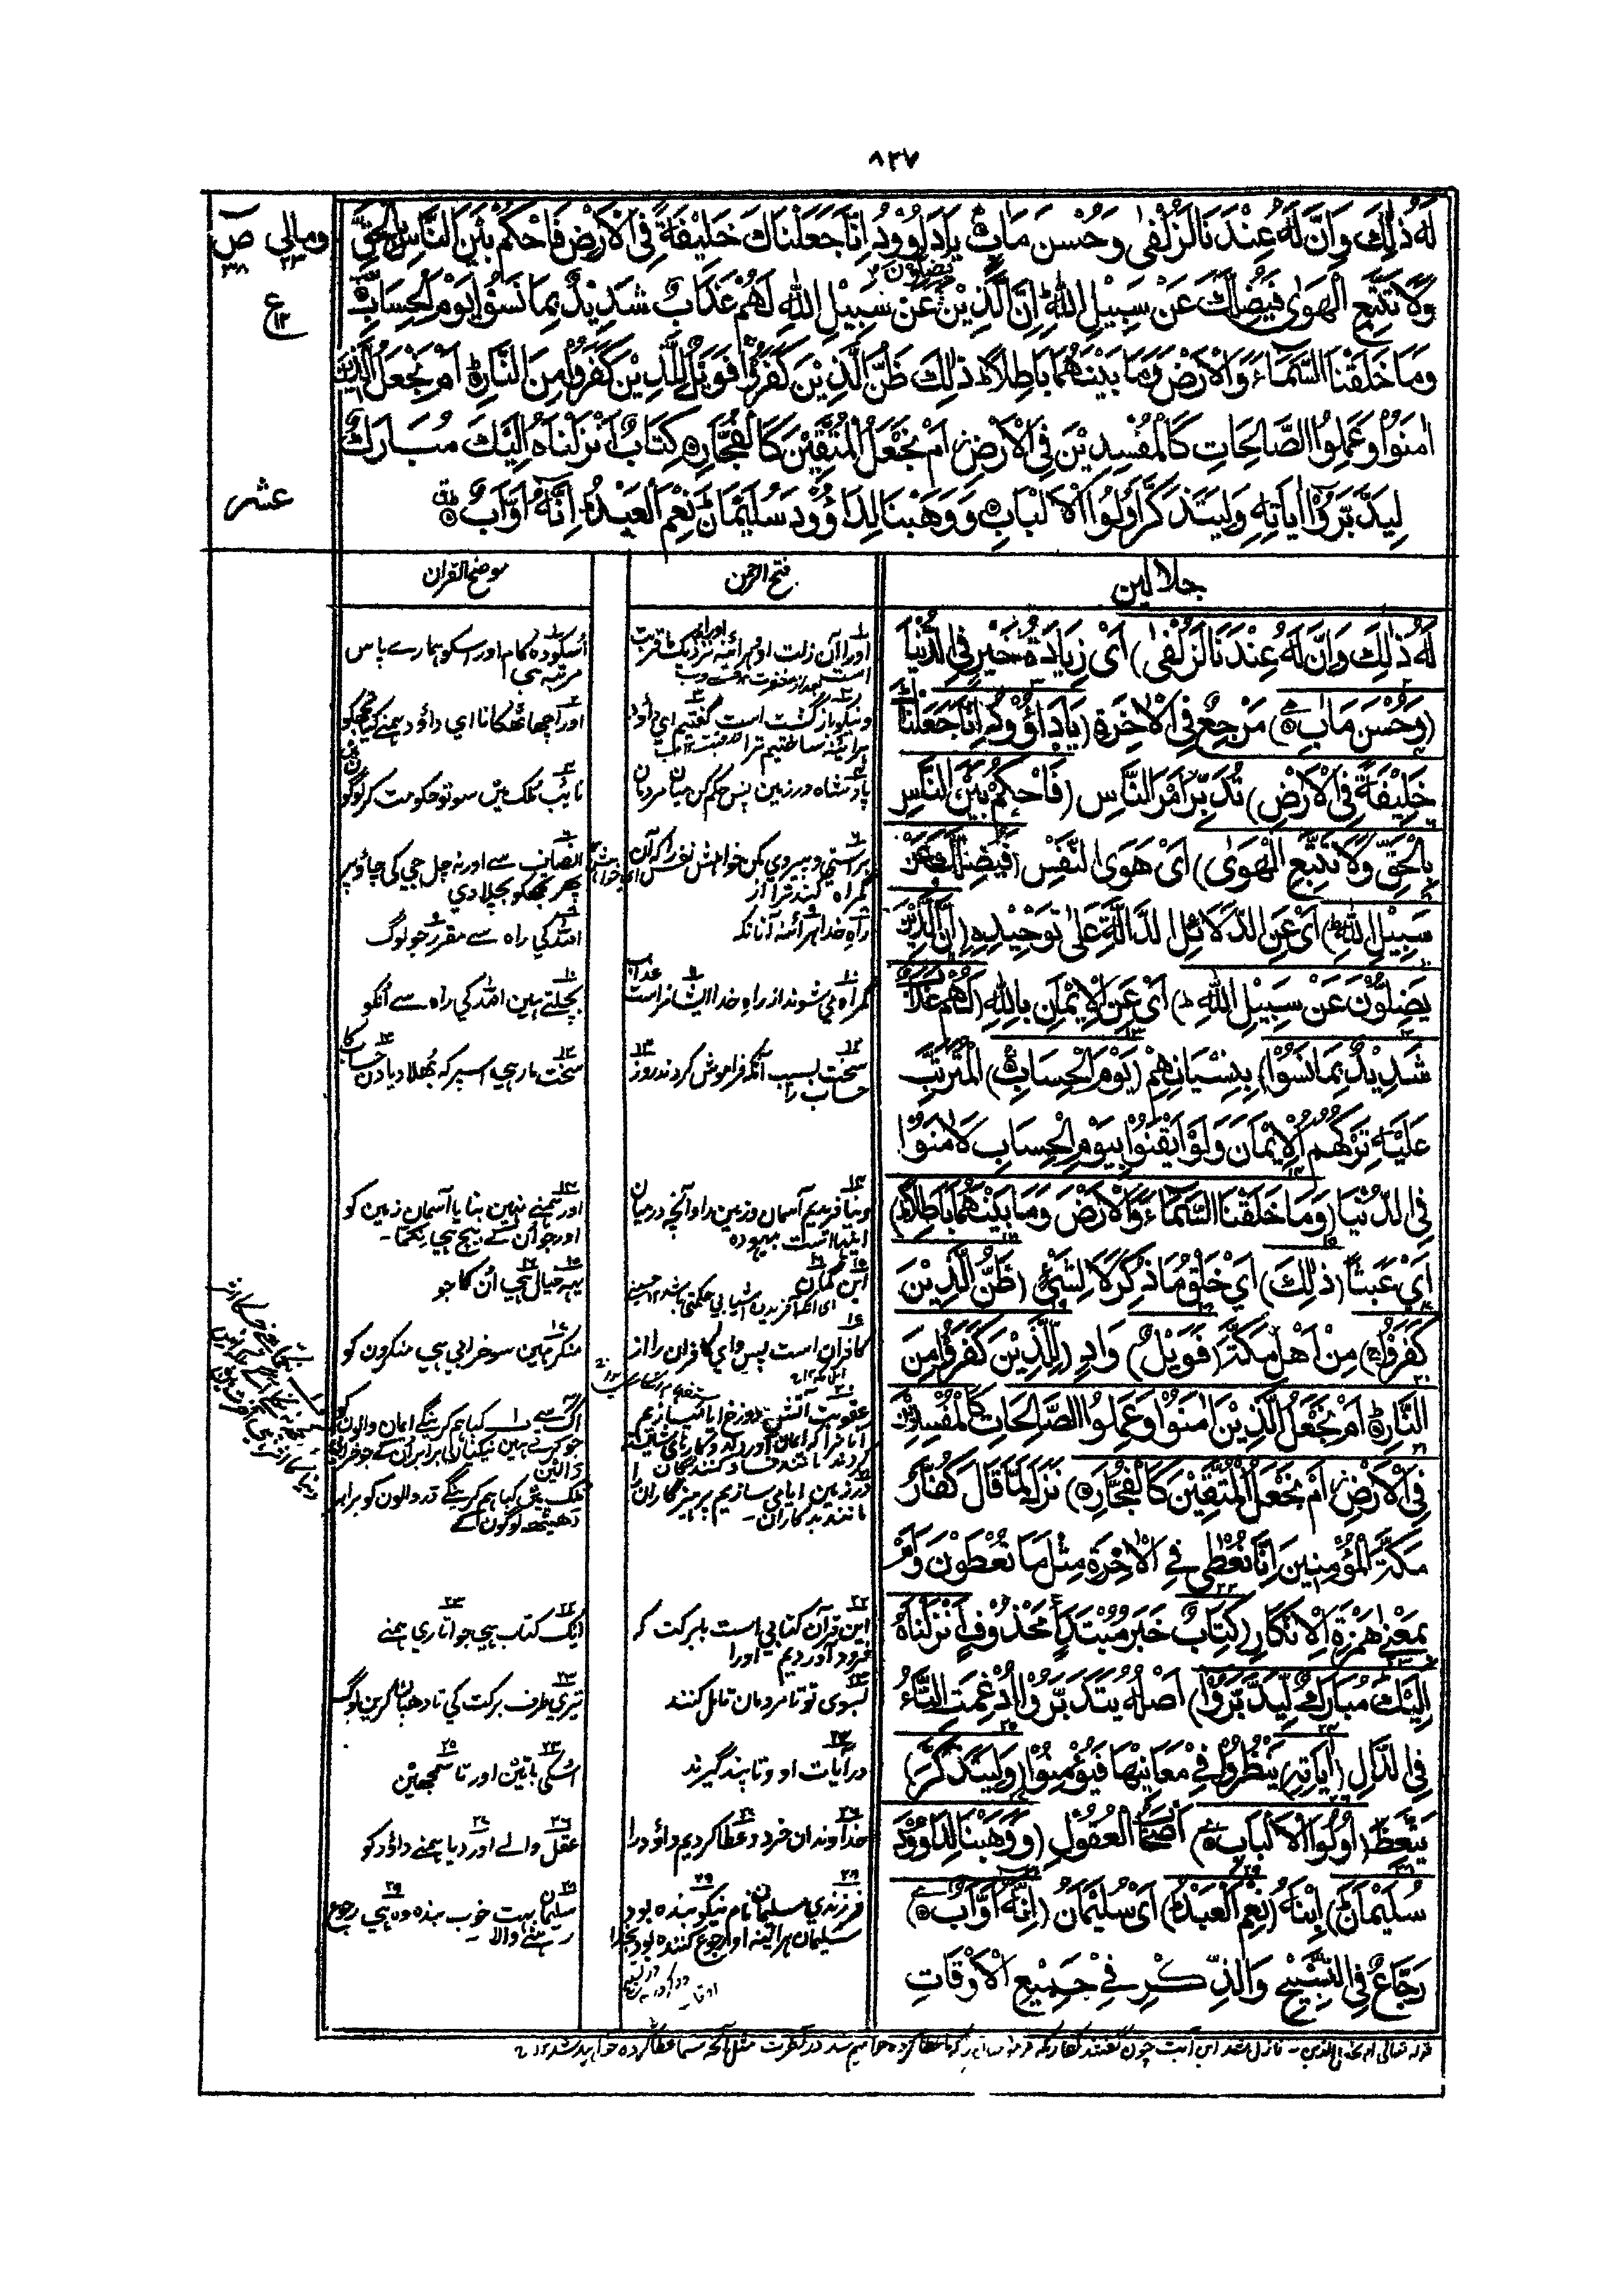 ٨٣٧
ومالي ٢٣ ص ٣٨
ع ١٢
عشر
لَهُ ذٰلِكَ وَاِنَّ لَهُ عِنْدَنَا لَزُلْفٰى وَحُسْنَ مَاٰبٍ يَادَاوُوْدُ اِنَّا جَعَلْنَاكَ خَلِيْفَةً فِى الْاَرْضِ فَاحْكُمْ بَيْنَ النَّاسِ بِالْحَقِّ
وَلَا تَتَّبِعِ الْهَوٰى فَيُضِلَّكَ عَنْ سَبِيْلِ اللّٰهِ اِنَّ الَّذِيْنَ يَضِلُّوْنَ عَنْ سَبِيْلِ اللّٰهِ لَهُمْ عَذَابٌ شَدِيْدٌ بِمَا نَسُوْا يَوْمَ الْحِسَابِ
وَمَا خَلَقْنَا السَّمَاءَ وَالْاَرْضَ وَمَا بَيْنَهُمَا بَاطِلًا ذٰلِكَ ظَنُّ الَّذِيْنَ كَفَرُوْا فَوَيْلٌ لِّلَّذِيْنَ كَفَرُوْا مِنَ النَّارِ اَمْ نَجْعَلُ الَّذِيْنَ
اٰمَنُوْا وَعَمِلُوا الصَّالِحَاتِ كَالْمُفْسِدِيْنَ فِى الْاَرْضِ اَمْ نَجْعَلُ الْمُتَّقِيْنَ كَالْفُجَّارِ كِتَابٌ اَنْزَلْنَاهُ اِلَيْكَ مُبَارَكٌ
لِيَدَّبَّرُوْا اٰيَاتِهٖ وَلِيَتَذَكَّرَ اُولُوا الْاَلْبَابِ وَوَهَبْنَا لِدَاوُوْدَ سُلَيْمَانَ نِعْمَ الْعَبْدُ اِنَّهُ اَوَّابٌ
جلالين
لَهُ ذٰلِكَ وَاِنَّ لَهُ عِنْدَنَا لَزُلْفٰى) اَىْ زِيَادَةُ خَيْرٍ فِى الدُّنْيَا
(وَحُسْنَ مَاٰبٍ) مَرْجِعٍ فِى الْاٰخِرَةِ (يَادَاوُوْدُ اِنَّا جَعَلْنَاكَ
خَلِيْفَةً فِى الْاَرْضِ) تُدَبِّرُ اَمْرَ النَّاسِ (فَاحْكُمْ بَيْنَ النَّاسِ
بِالْحَقِّ وَلَا تَتَّبِعِ الْهَوٰى) اَىْ هَوَى النَّفْسِ (فَيُضِلَّكَ عَنْ
سَبِيْلِ اللّٰهِ) اَىْ عَنِ الدَّلَائِلِ الدَّالَّةِ عَلٰى تَوْحِيْدِهٖ (اِنَّ الَّذِيْنَ
يَضِلُّوْنَ عَنْ سَبِيْلِ اللّٰهِ) اَىْ عَنِ الْاِيْمَانِ بِاللّٰهِ (لَهُمْ عَذَابٌ
شَدِيْدٌ بِمَا نَسُوْا) بِنِسْيَانِهِمْ (يَوْمَ الْحِسَابِ) الْمُتَرَتِّبِ
عَلَيْهِ تَرْكُهُمُ الْاِيْمَانَ وَلَوْ اَيْقَنُوْا بِيَوْمِ الْحِسَابِ لَاٰمَنُوْا
فِى الدُّنْيَا (وَمَا خَلَقْنَا السَّمَاءَ وَالْاَرْضَ وَمَا بَيْنَهُمَا بَاطِلًا)
اَىْ عَبَثًا (ذٰلِكَ) اَىْ خَلْقُ مَا ذُكِرَ لَا لِشَىْءٍ (ظَنُّ الَّذِيْنَ
كَفَرُوْا) مِنْ اَهْلِ مَكَّةَ (فَوَيْلٌ) وَادٍ (لِلَّذِيْنَ كَفَرُوْا مِنَ
النَّارِ اَمْ نَجْعَلُ الَّذِيْنَ اٰمَنُوْا وَعَمِلُوا الصَّالِحَاتِ كَالْمُفْسِدِيْنَ
فِى الْاَرْضِ اَمْ نَجْعَلُ الْمُتَّقِيْنَ كَالْفُجَّارِ) نَزَلَ لَمَّا قَالَ كُفَّارُ
مَكَّةَ لِلْمُؤْمِنِيْنَ اِنَّا نُعْطٰى فِى الْاٰخِرَةِ مِثْلَ مَا تُعْطَوْنَ وَاَمْ
بِمَعْنٰى هَمْزَةِ الْاِنْكَارِ (كِتَابٌ) خَبَرُ مُبْتَدَإٍ مَحْذُوْفٍ (اَنْزَلْنَاهُ
اِلَيْكَ مُبَارَكٌ لِيَدَّبَّرُوْا) اَصْلُهُ يَتَدَبَّرُوْا اُدْغِمَتِ التَّاءُ
فِى الدَّالِ (اٰيَاتِهٖ) يَنْظُرُوْا فِىْ مَعَانِيْهَا فَيُؤْمِنُوْا (وَلِيَتَذَكَّرَ)
يَتَّعِظَ (اُولُوا الْاَلْبَابِ) اَصْحَابُ الْعُقُوْلِ (وَوَهَبْنَا لِدَاوُوْدَ
سُلَيْمَانَ) اِبْنَهُ (نِعْمَ الْعَبْدُ) اَىْ سُلَيْمَانُ (اِنَّهُ اَوَّابٌ)
رَجَّاعٌ فِى التَّسْبِيْحِ وَالذِّكْرِ فِىْ جَمِيْعِ الْاَوْقَاتِ
فتح الرحمن
اورا آن زلت او هرآئينه اورا نزديك ما قربت
است
ونيكو بازگشت است گفتيم اي داؤد
هرآئينه ساختيم ترا
پادشاه در زمين پس حكم كن ميان مردمان
براستي و پيروي مكن خواهش نفس را كه آن
گمراه كند ترا از
راه خدا هرآئنه آنانكه
گمراه مي شوند از راه خدا ايشانراست عذاب
سخت بسبب آنكه فراموش كردند روز
حساب را
ونيافريديم آسمان وزمين را و آنچه درميان
اينهاست بيهوده
اين گمان
كافران است پس واي كافران را از
عقوبت آتش دوزخ آيا ميسازيم
آنانرا كه ايمان آوردند و كارهاي شايسته
كردند مانند فساد كنندگان
در زمين آيا مي سازيم پرهيزگاران را
مانند بدكاران ـ
اين قرآن كتابي است بابركت كه
فرود آورديم اورا
بسوى تو تا مردمان تامل كنند
در آيات او و تا پند گيرند
خداوندان خرد و عطا كرديم داؤد را
فرزندي سليمان نام نيكو بنده بود
سليمان هرآئينه او رجوع كننده بود بخدا
موضح القران
اُسكو وه كام اور اسكو همارے پاس
مرتبہ هى
اور اچها ٹهكانا اي داؤد همنے كيا تجهكو
نائب ملك مين سو تو حكومت كر لوگون
انصاف سے اور نہ چل جي كي چاؤ پر
پهر تجهكو بچلا دي
اللہ كي راہ سے مقرر جو لوگ
بچلتے هين اللہ كي راہ سے اُنكو
سخت مار هي اسپر كہ بُهلا ديا دن حساب كا
اور همنے نهين بنايا آسمان زمين كو
اور جو اُن كے بيچ هي نكما ـ
يهہ خيال هي اُن كا جو
منكر هين سو خرابي هي منكرون كو
آگ سے كيا هم كرينگے ايمان والون كو
جو كرتے هين نيكيان برابر اُن كے جو خرابي
ڈالين
ملك مين كيا هم كرينگے ڈر والون كو برابر
ڈهيٹهہ لوگون كے
ايك كتاب هي جو اتاري همنے
تيري طرف بركت كي تا دهيان كرين لوگ
اسكي باتين اور تا سمجهين
عقل والے اور ديا همنے داؤد كو
سليمان بهت خوب بندہ وہ هي رجوع
رهنے والا ـ